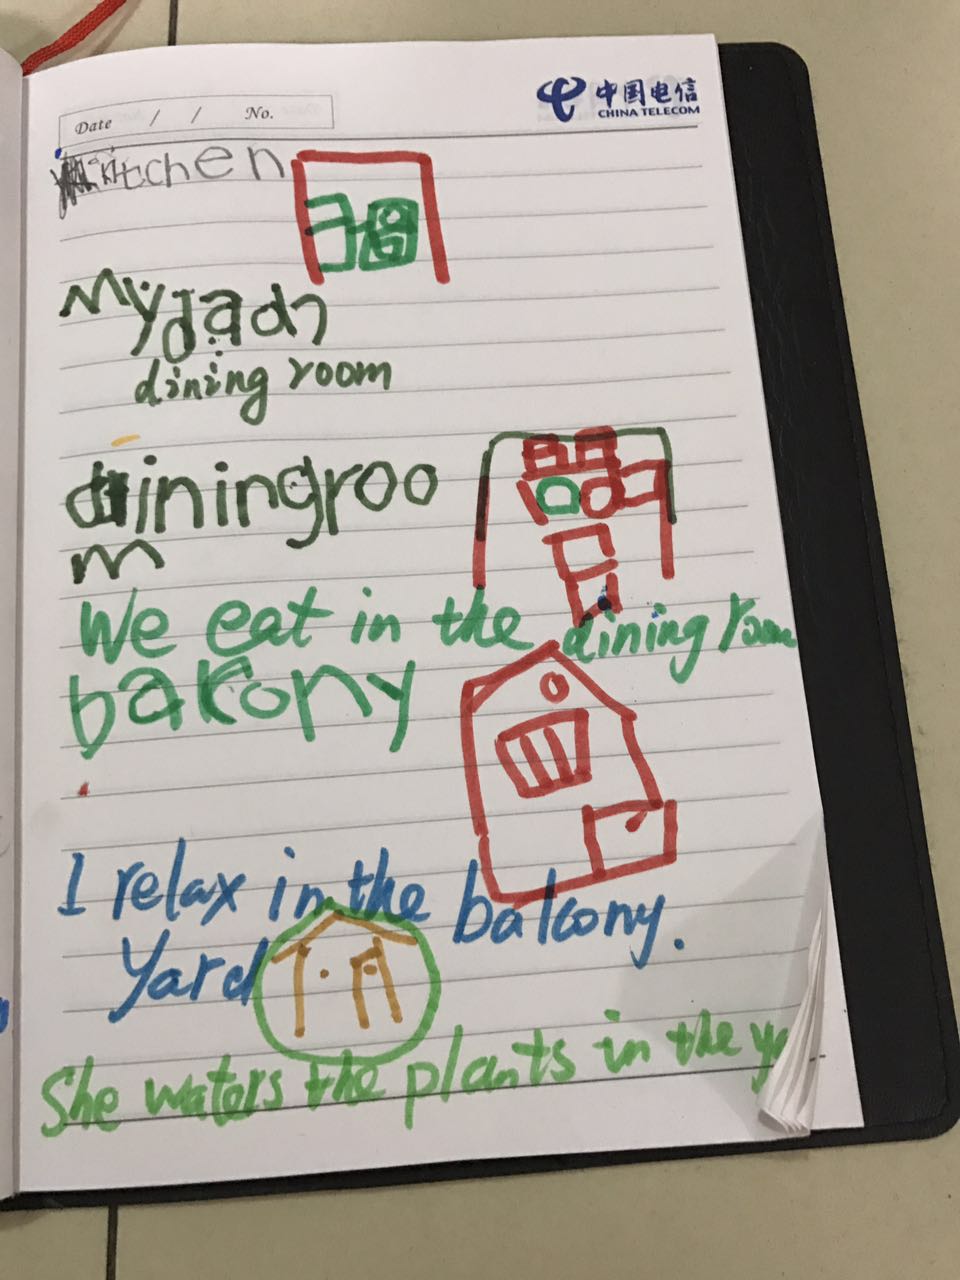 Date / / No.
中国电信
CHINA TELECOM
kitchen
My
dining room
diningroo
m
We eat in the dining room
balkony
I relax in the balcony.
Yard
She waters the plants in the